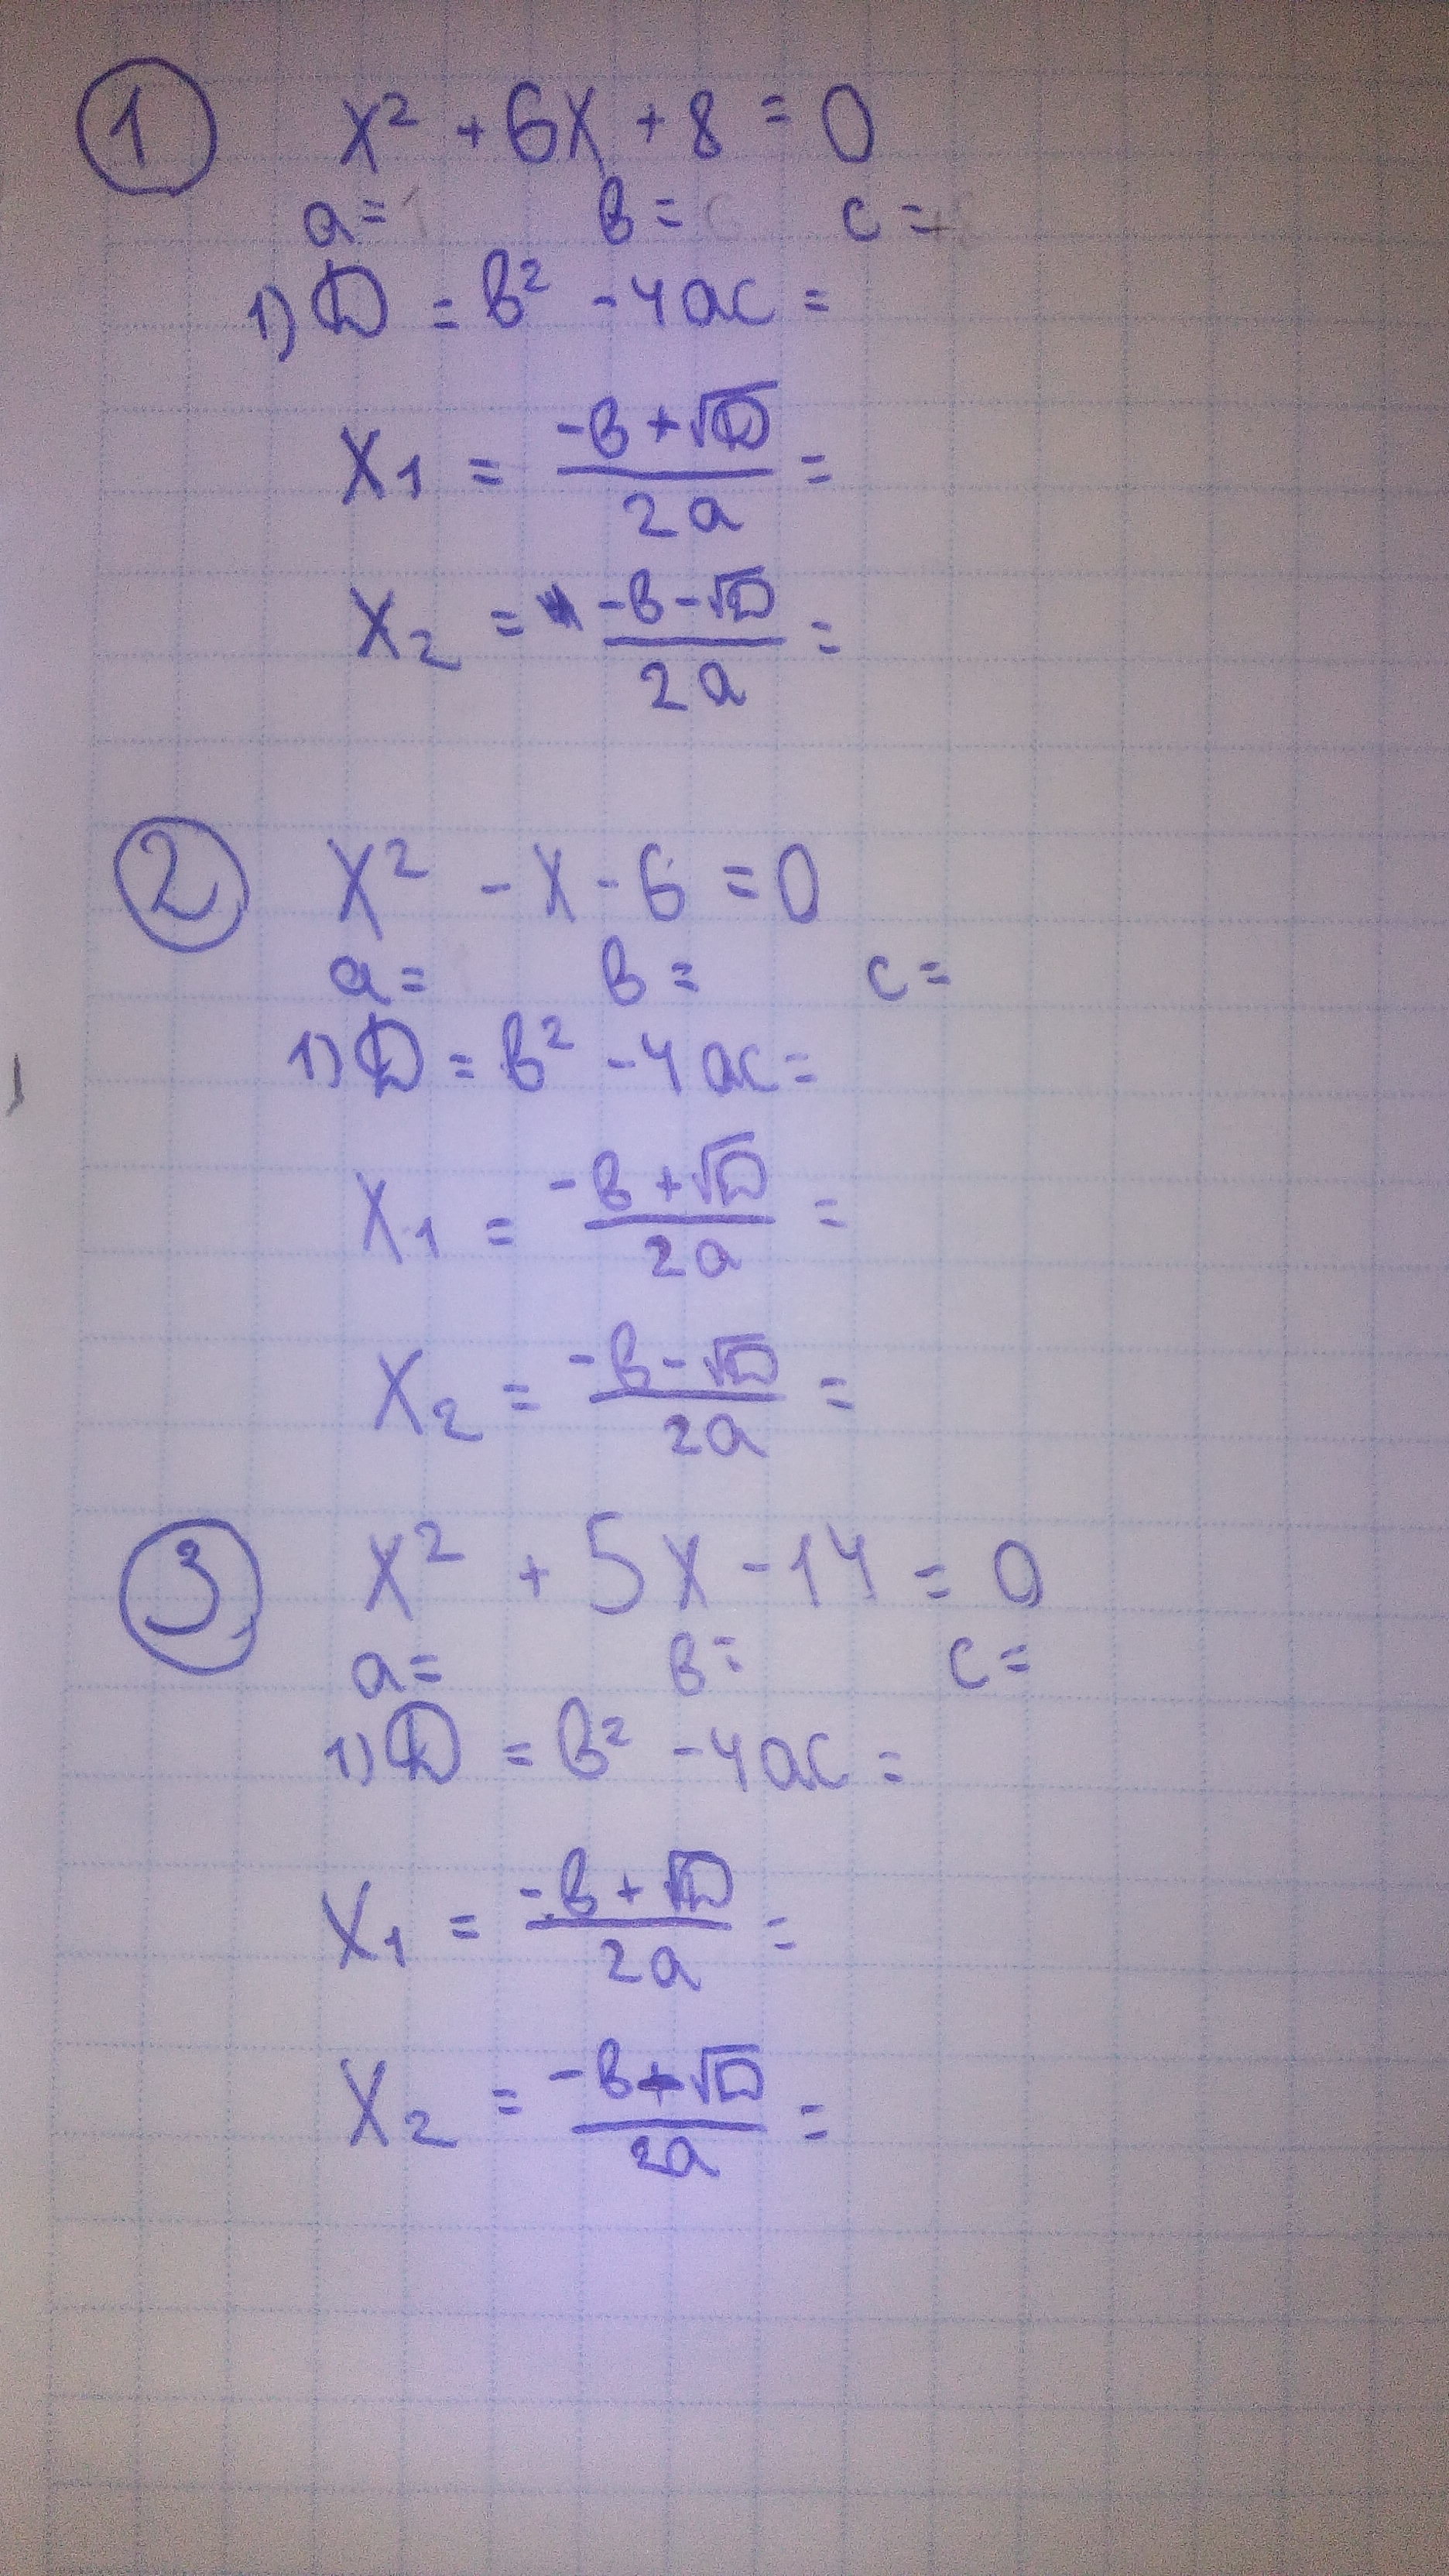 1 x² + 6x + 8 = 0
a = 1 в = 6 c =
1) D = в² - 4ac =
x₁ = (-в + √D) / 2a =
x₂ = (-в - √D) / 2a =
2 x² - x - 6 = 0
a = в = c =
1) D = в² - 4ac =
x₁ = (-в + √D) / 2a =
x₂ = (-в - √D) / 2a =
3 x² + 5x - 14 = 0
a = в = c =
1) D = в² - 4ac =
x₁ = (-в + √D) / 2a =
x₂ = (-в - √D) / 2a =